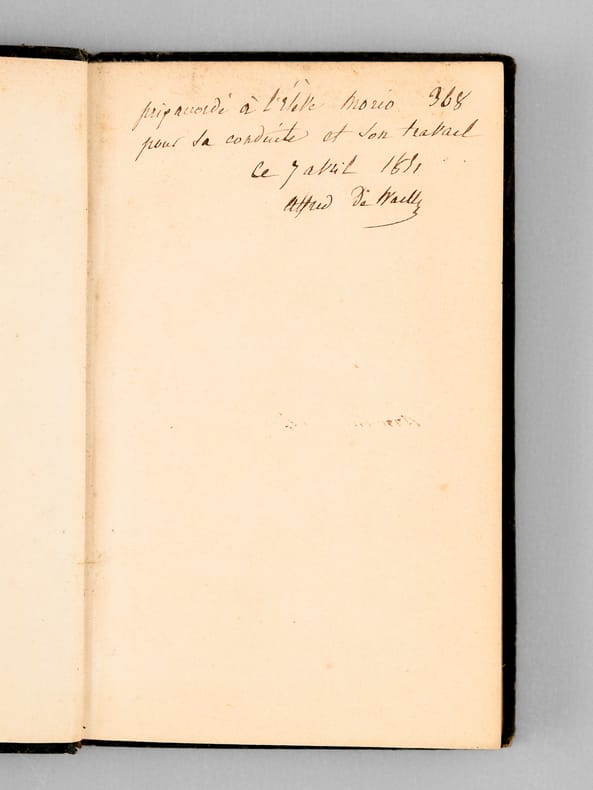 prix accordé à l'Elève Morio 368
pour sa conduite et son travail
Ce 7 avril 1851
Alfred De Wailly